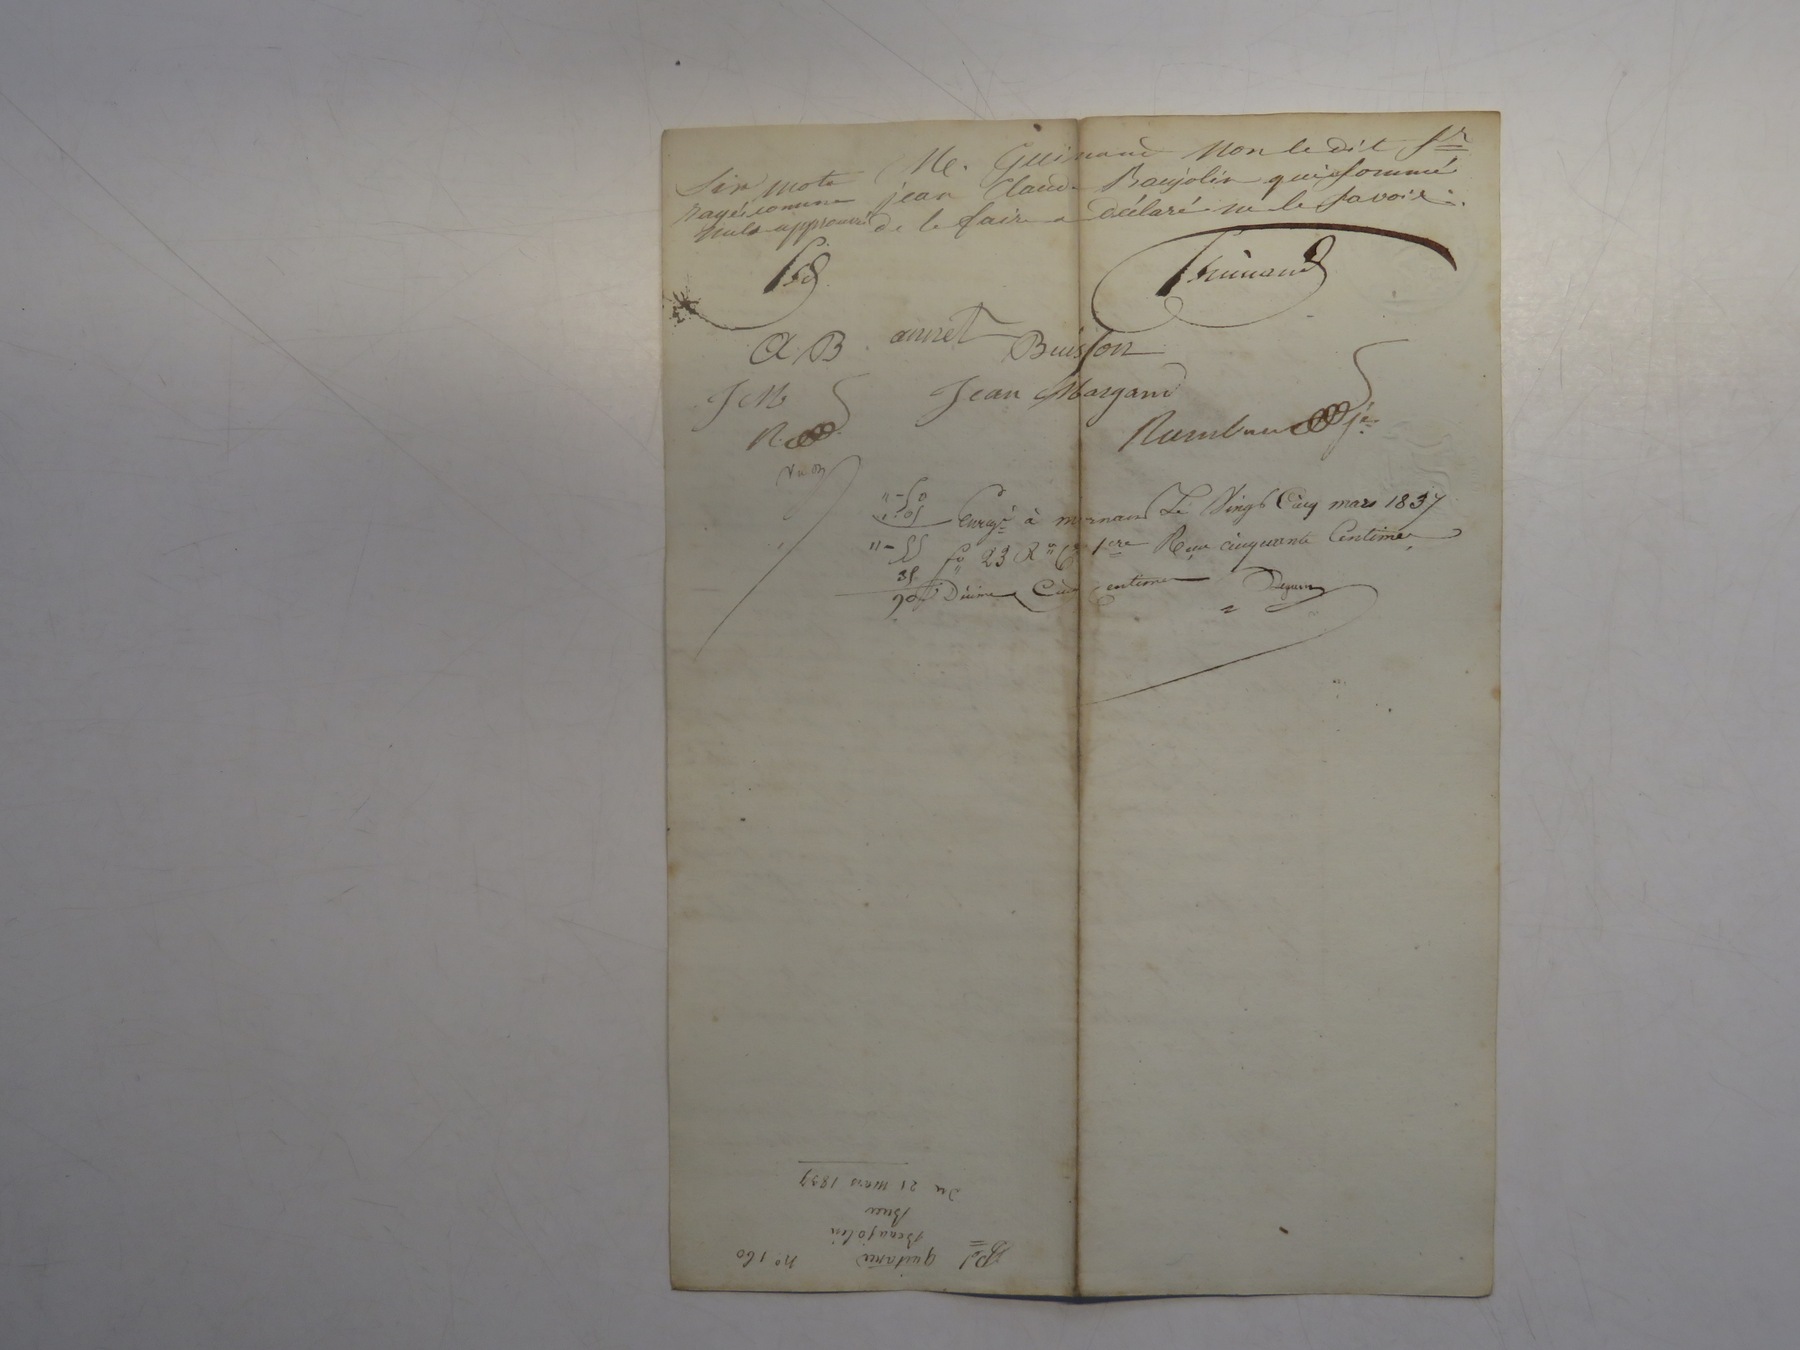 Six mots
Rayés comme
nuls approuvés
Me. Guinand non le dit Sr
jean Claude Baujolin qui sommé
de le faire a déclaré ne le savoir.
Guinand
A. B. annet Buisson
J M Jean Margand
R
Vu B
"-50
1.05
"-55
35
90
Enregé à mornant Le Vingt Cinq mars 1837
fo 23 Ro Ce 1ere Reçu cinquante Centimes
Décime Cinq centimes
Rd quitance no 160
Beaujolin
Buer
Du 21 mars 1837